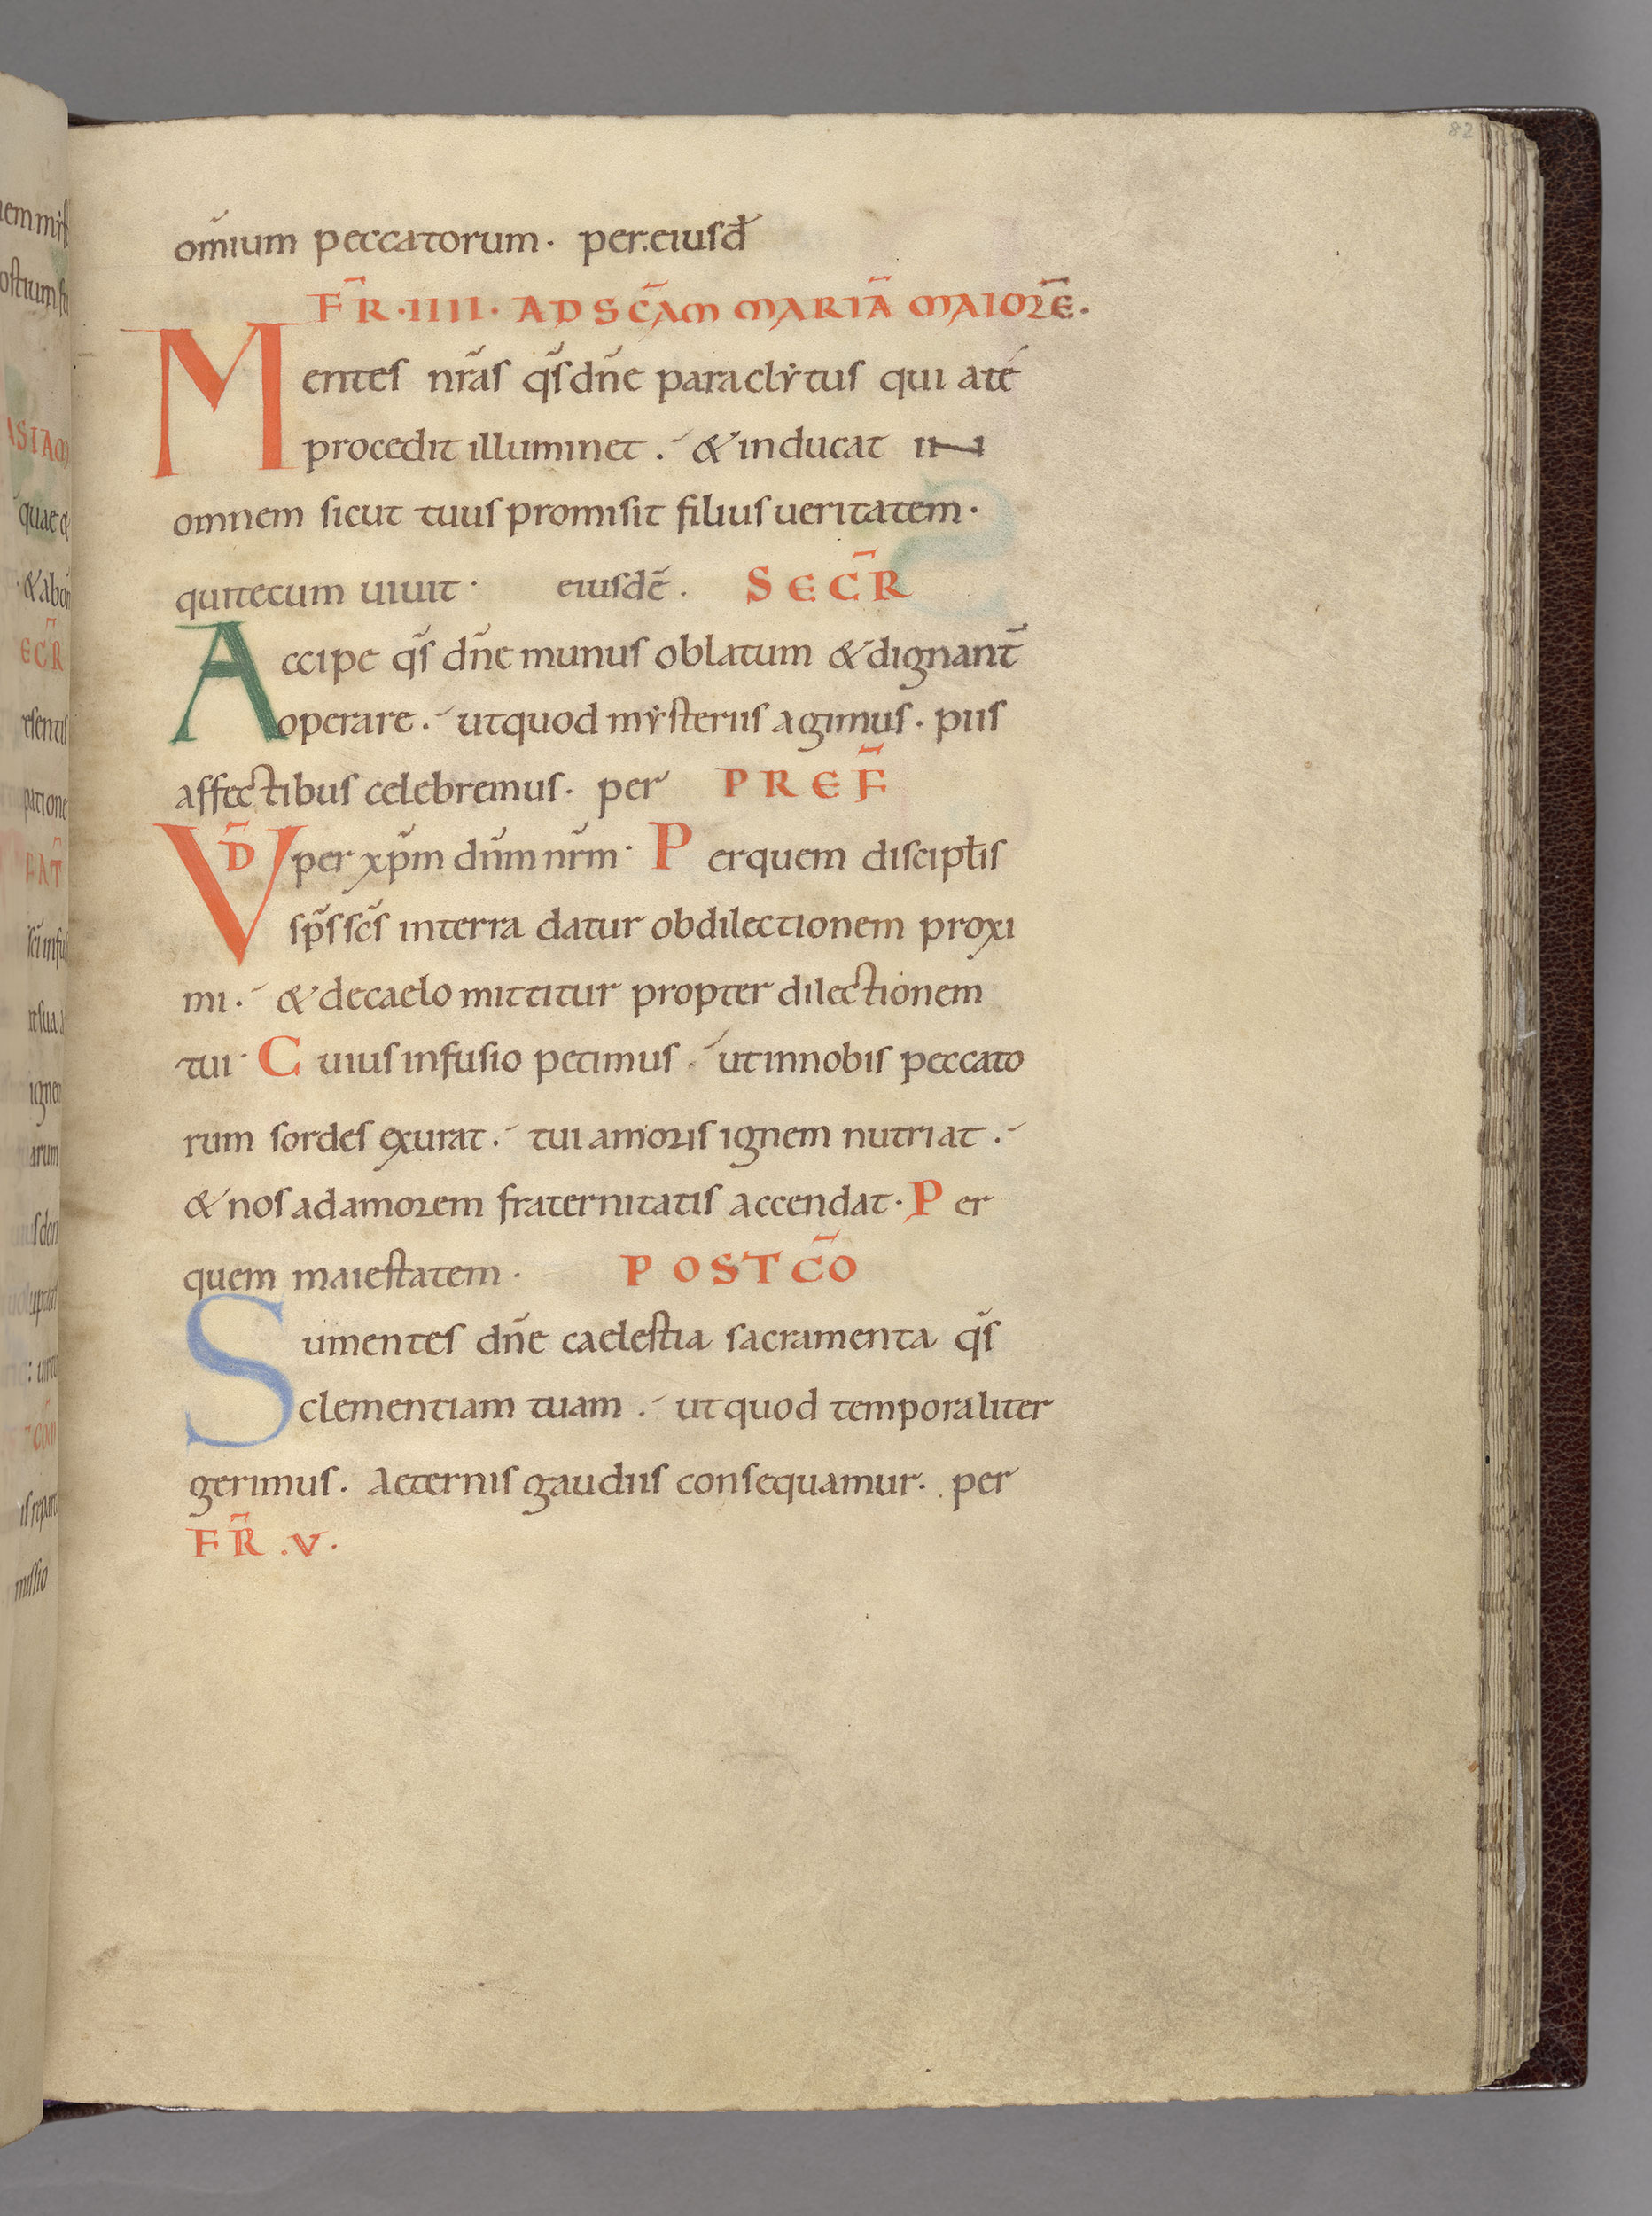 82
om̃ium peccatorum· per.eiusđ
FR̃·IIII· AD SC̃AM MARIÃ MAIORẼ·
Mentes nr̃as q̃s dñe paraclẏtus qui a té
procedit illuminet. & inducat IN
omnem sicut tuus promisit filius ueritatem·
qui tecum uiuit· eiusdẽ. SECR̃
Accipe q̃s dñe munus oblatum & dignant̃
operare. ut quod mẏsteriis agimus. piis
affectibus celebremus. per PREF̃
VD̃ per xp̃m dñm nr̃m· Per quem discipl̃is
sp̃s sc̃s in terra datur ob dilectionem proxi
mi. & de caelo mittitur propter dilectionem
tui· Cuius infusio petimus. ut in nobis peccato
rum sordes exurat. tui amoris ignem nutriat.
& nos ad amorem fraternitatis accendat· Per
quem maiestatem· POST CÕ
Sumentes dñe caelestia sacramenta q̃s
clementiam tuam. ut quod temporaliter
gerimus. aeternis gaudiis consequamur. per
FR̃.V.